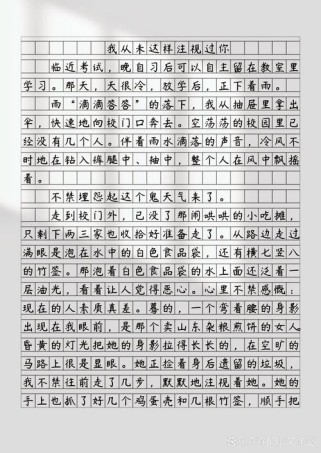 我从未这样注视过你
临近考试，晚自习后可以自主留在教室里
学习。那天，天很冷，放学后，正下着雨。
雨“滴滴答答”的落下，我从抽屉里拿出
伞，快速地向校门口奔去。空荡荡的校园里已
经没有几个人。伴着雨水滴落的声音，冷风不
时地在钻入裤腿中、袖中，整个人在风中飘摇
着。
不禁埋怨起这个鬼天气来了。
走到校门外，已没了那闹哄哄的小吃摊，
只剩下两三家也收拾好准备走了。从路边走过
满眼是泡在水中的白色食品袋，还有横七竖八
的竹签。那泡着白色食品袋的水上面还泛着一
层油光，看着让人觉得恶心。心里不禁感慨：
现在的人素质真差。蓦的，一个弯着腰的身影
出现在我眼前，是那个卖山东杂粮煎饼的女人
昏黄的灯光把她的身影拉得长长的，在空旷的
马路上很是显眼。她正捡着身后遗留的垃圾，
我不禁往前走了几步，默默地注视着她。她的
手上也抓了好几个鸡蛋壳和几根竹签，顺手把